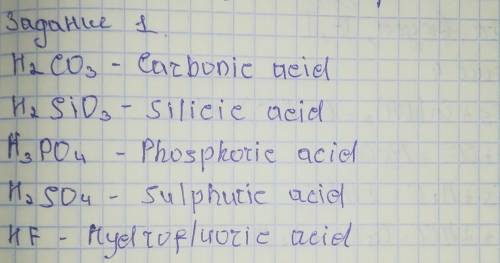 Задание 1.
H2CO3 - Carbonic acid
H2SiO3 - Silicic acid
H3PO4 - Phosphoric acid
H2SO4 - Sulphuric acid
HF - Hydrofluoric acid